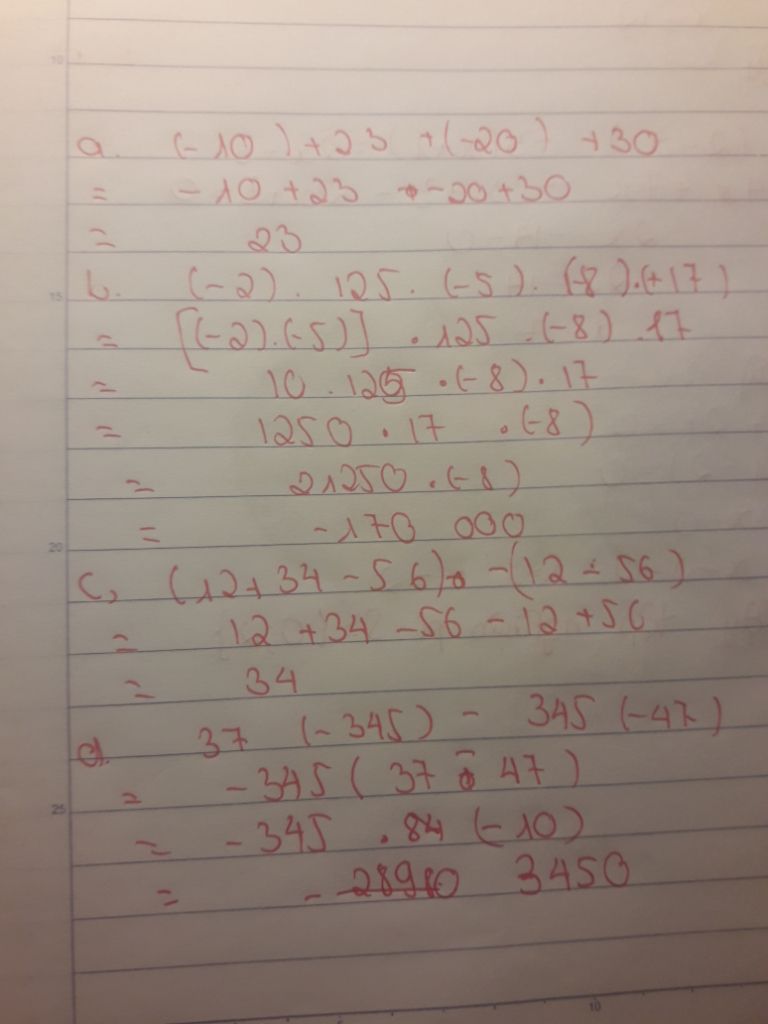 a. (-10) + 23 + (-20) + 30
= -10 + 23 - 20 + 30
= 23
b. (-2) . 125 . (-5) . (-8) . (+17)
= [(-2).(-5)] . 125 . (-8) . 17
= 10 . 125 . (-8) . 17
= 1250 . 17 . (-8)
= 21250 . (-8)
= -170 000
c, (12 + 34 - 56) - (12 - 56)
= 12 + 34 - 56 - 12 + 56
= 34
d. 37 (-345) - 345 (-47)
= -345 ( 37 - 47 )
= -345 . 84 (-10)
= - 3450
15
20
25
10